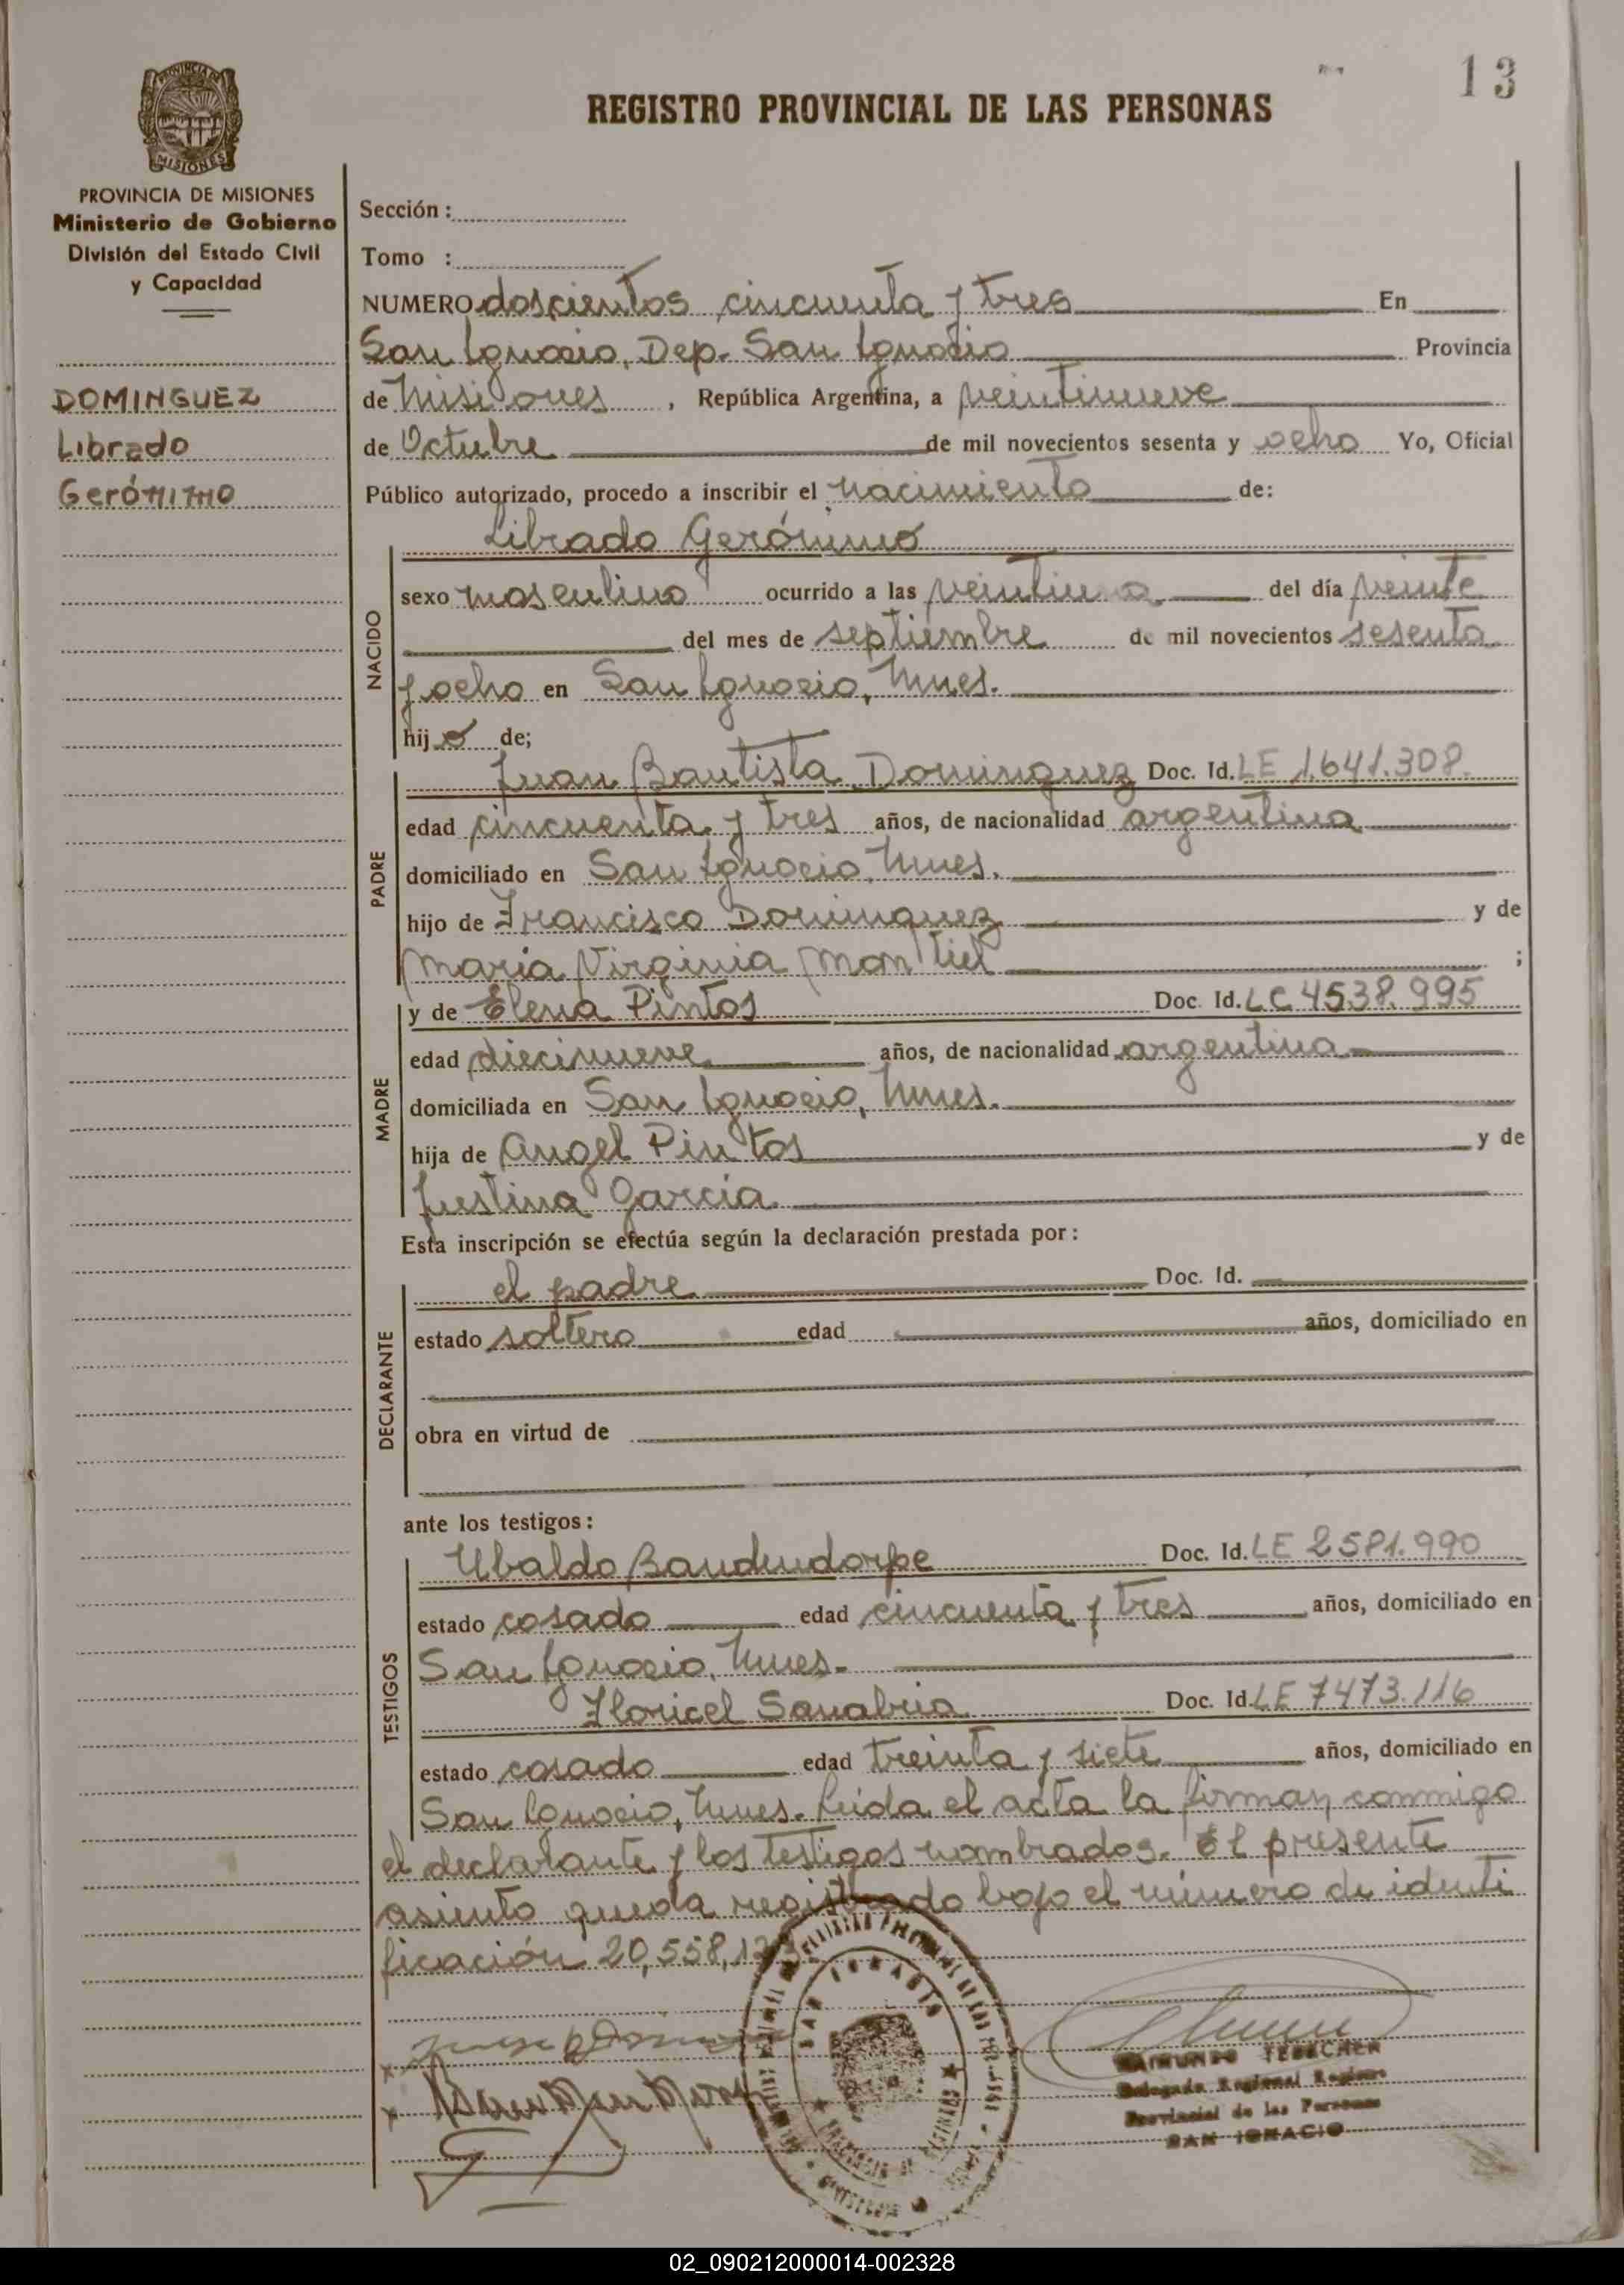 13
REGISTRO PROVINCIAL DE LAS PERSONAS
MISIONES
PROVINCIA DE MISIONES
Ministerio de Gobierno
División del Estado Civil
y Capacidad
DOMINGUEZ
Librado
Gerónimo
Sección :
Tomo :
NUMERO doscientos cincuenta y tres En
San Ignacio, Dep. San Ignacio Provincia
de Misiones , República Argentina, a veintinueve
de Octubre de mil novecientos sesenta y ocho Yo, Oficial
Público autorizado, procedo a inscribir el nacimiento de:
Librado Gerónimo
NACIDO
sexo masculino ocurrido a las veintiuna del día veinte
del mes de septiembre de mil novecientos sesenta
y ocho en San Ignacio, Mnes.
hijo de;
PADRE
Juan Bautista Dominguez Doc. Id. LE 1.641.308.
edad cincuenta y tres años, de nacionalidad argentina
domiciliado en San Ignacio, Mnes.
hijo de Francisco Dominguez y de
Maria Virginia Montiel ;
MADRE
y de Elena Pintos Doc. Id. LC 4538.995
edad diecinueve años, de nacionalidad argentina
domiciliada en San Ignacio, Mnes.
hija de Angel Pintos y de
Justina García
Esta inscripción se efectúa según la declaración prestada por :
DECLARANTE
el padre Doc. Id.
estado soltero edad años, domiciliado en
obra en virtud de
ante los testigos :
TESTIGOS
Ubaldo Baudendorpe Doc. Id. LE 2581.990
estado casado edad cincuenta y tres años, domiciliado en
San Ignacio, Mnes.
Floricel Sanabria Doc. Id. LE 7473.116
estado casado edad treinta y siete años, domiciliado en
San Ignacio, Mnes. Leída el acta la firman conmigo
el declarante y los testigos nombrados. El presente
asiento queda registrado bajo el número de identi
ficación 20,558,
SAN IGNACIO
RAIMUNDO TESCHER
Delegado Regional Registro
Provincial de las Personas
SAN IGNACIO
02_090212000014-002328